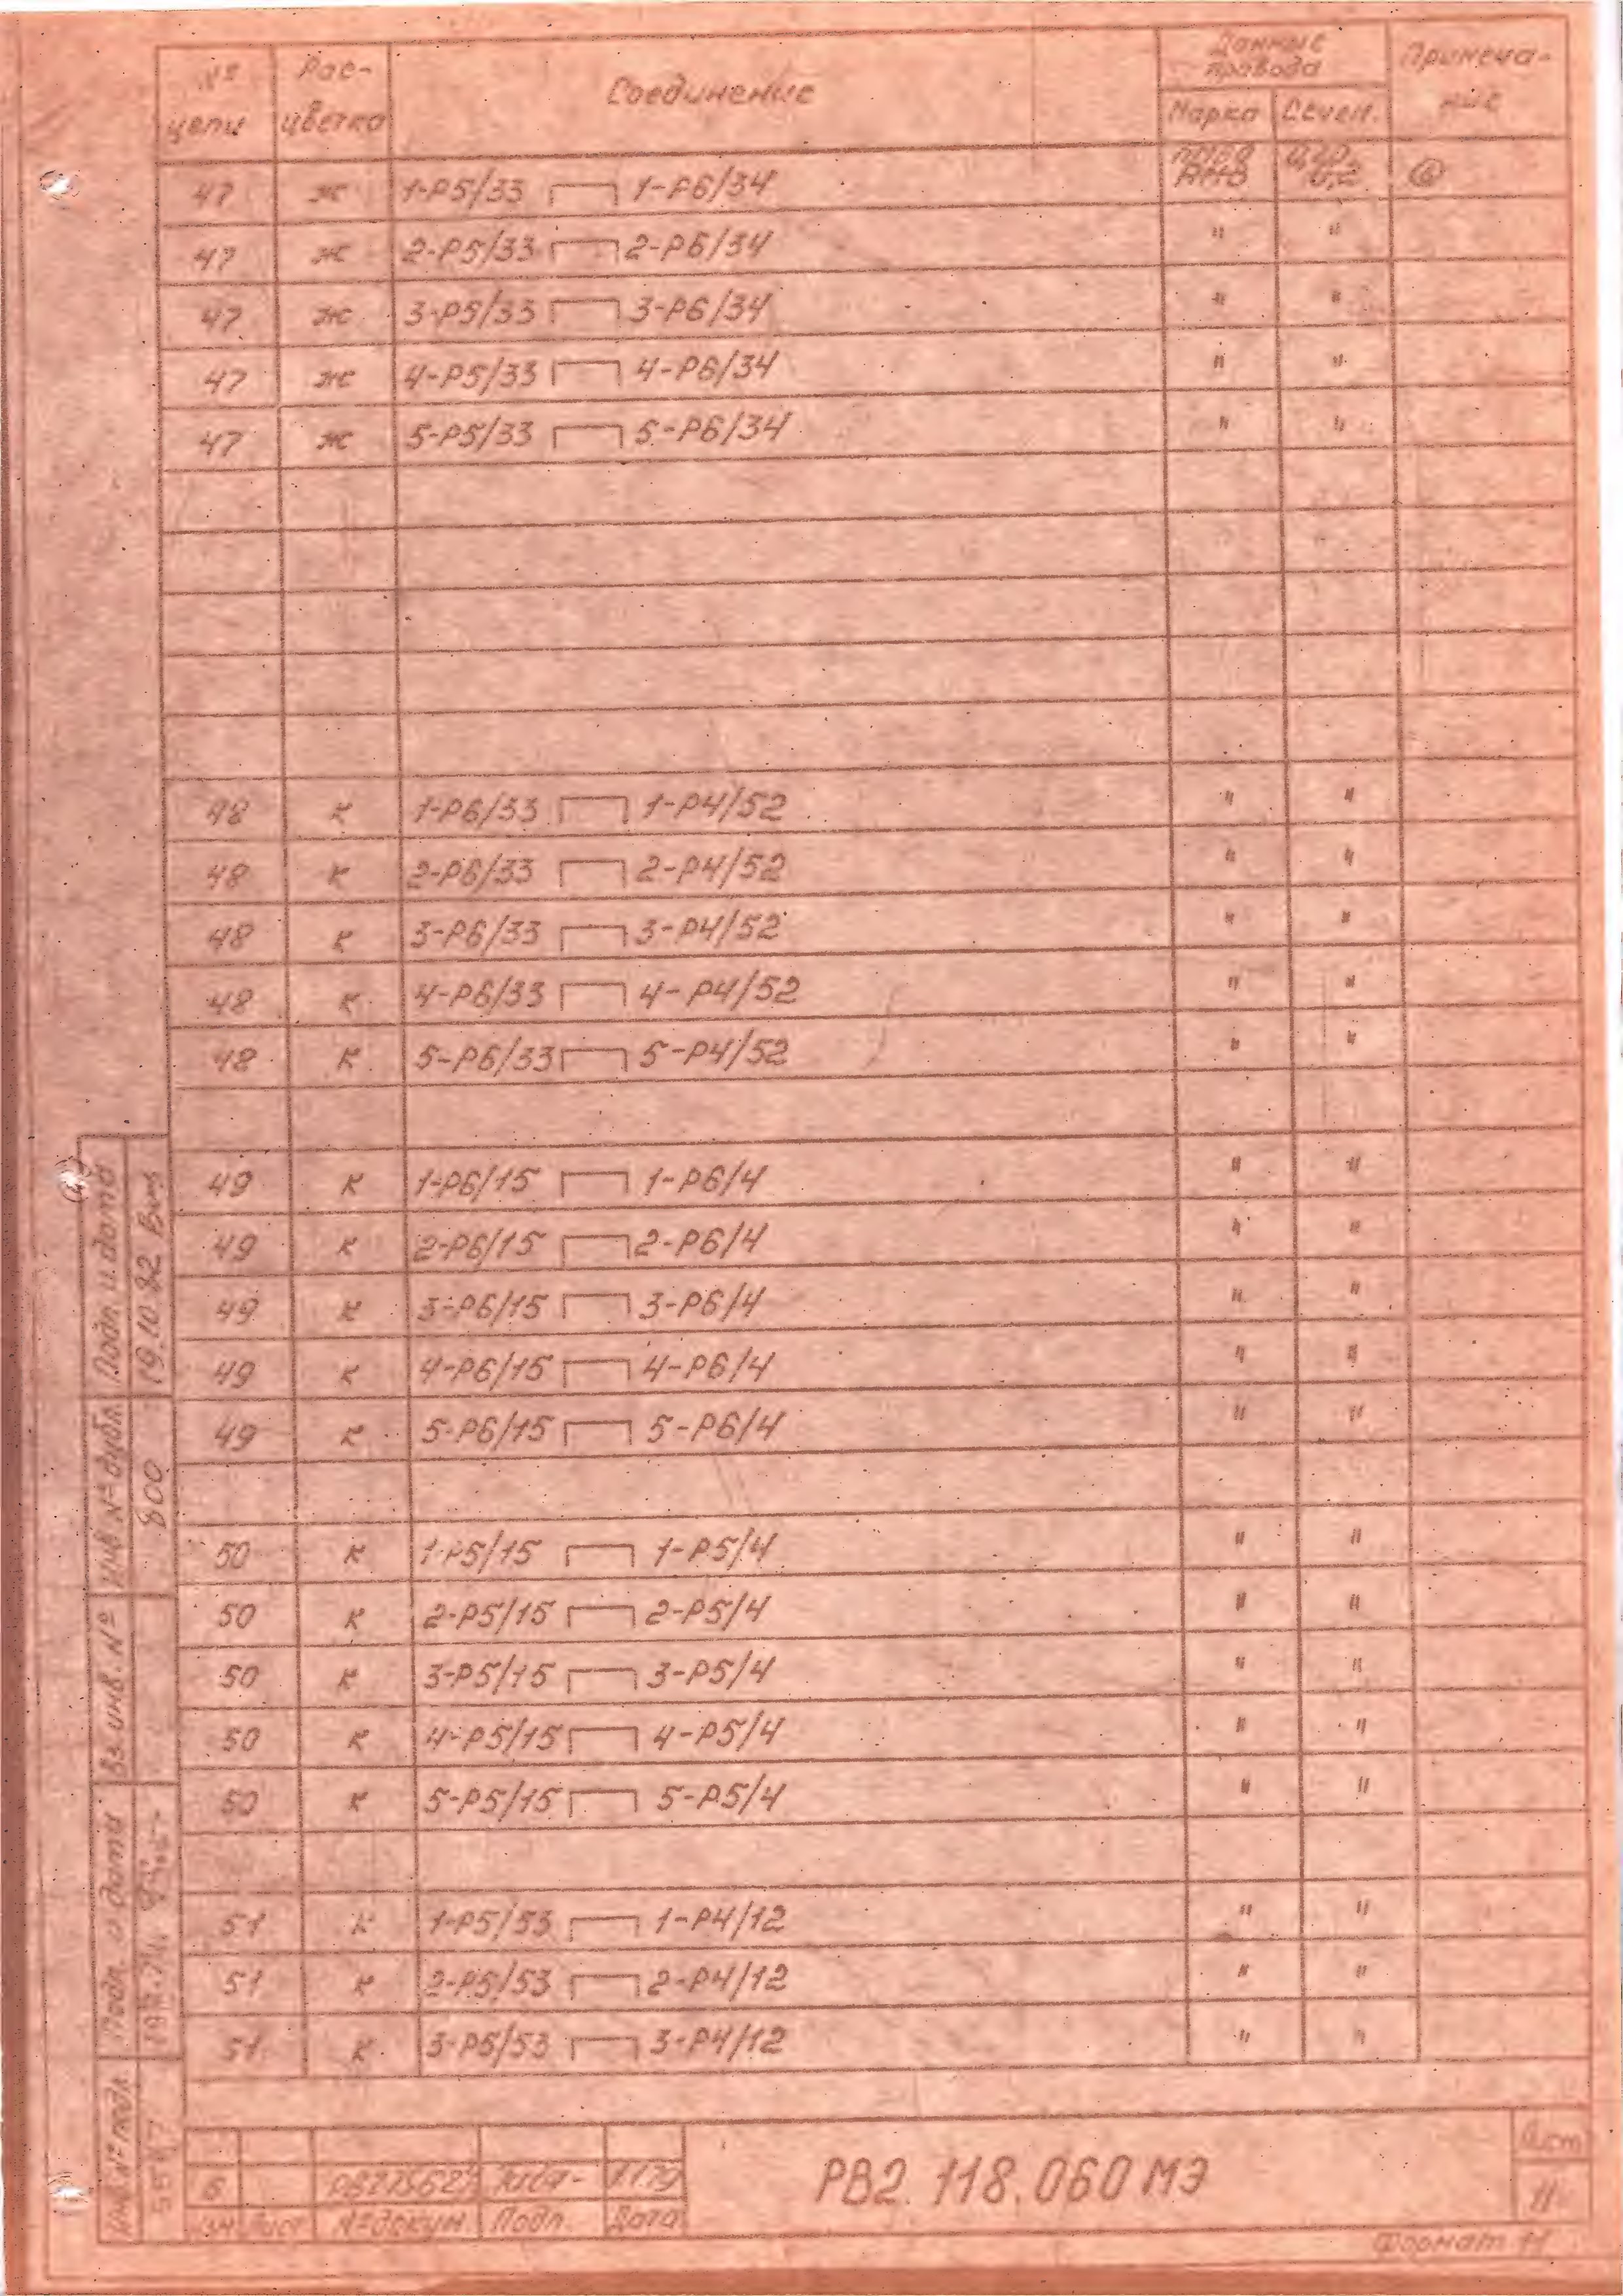 № цепи Рас-цветка Соединение Данные провода Примеча-ние
Марка Сечен.
47 ж 1-Р5/33 1-Р6/34 ⑥
47 ж 2-Р5/33 2-Р6/34 " "
47 ж 3-Р5/33 3-Р6/34 " "
47 ж 4-Р5/33 4-Р6/34 " "
47 ж 5-Р5/33 5-Р6/34 " "
48 к 1-Р6/33 1-Р4/52 " "
48 к 2-Р6/33 2-Р4/52 " "
48 к 3-Р6/33 3-Р4/52 " "
48 к 4-Р6/33 4-Р4/52 " "
48 к 5-Р6/33 5-Р4/52 " "
49 к 1-Р6/15 1-Р6/4 " "
49 к 2-Р6/15 2-Р6/4 " "
49 к 3-Р6/15 3-Р6/4 " "
49 к 4-Р6/15 4-Р6/4 " "
49 к 5-Р6/15 5-Р6/4 " "
50 к 1-Р5/15 1-Р5/4 " "
50 к 2-Р5/15 2-Р5/4 " "
50 к 3-Р5/15 3-Р5/4 " "
50 к 4-Р5/15 4-Р5/4 " "
50 к 5-Р5/15 5-Р5/4 " "
51 к 1-Р5/53 1-Р4/12 " "
51 к 2-Р5/53 2-Р4/12 " "
51 к 3-Р5/53 3-Р4/12 " "
Подп. и дата
19.10.82
Инв № дубл.
800
Вз. инв. №
Подп. и дата
Инв. № подл.
РВ2.118.060 МЭ
Лист
11
Изм Лист № докум. Подп. Дата
Формат 11